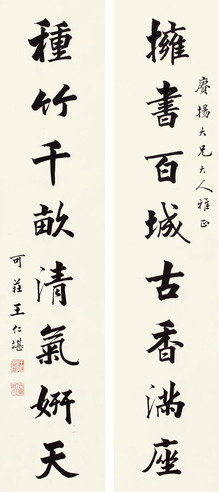 擁書百城古香滿座
賡揚大兄大人雅正
種竹千畝清氣妍天
可莊王仁堪